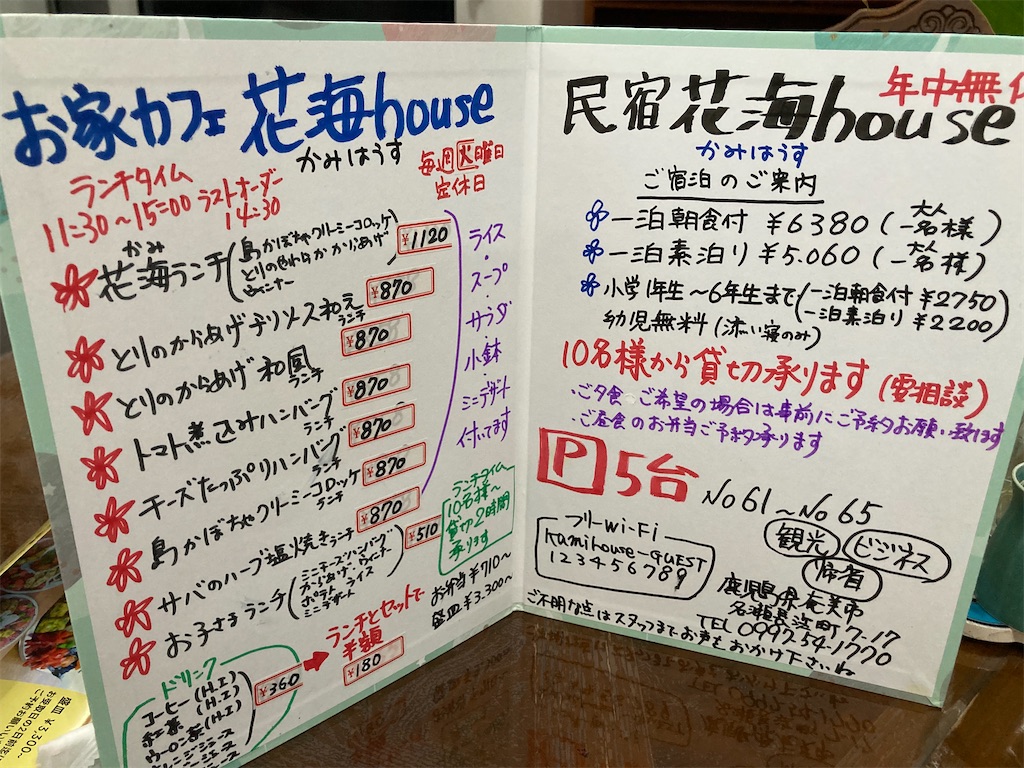 お家カフェ 花海house
かみはうす
毎週火曜日
定休日
ランチタイム
11:30～15:00
ラストオーダー
14:30
かみ
花海ランチ
島かぼちゃクリーミーコロッケ
ウィンナー
¥1120
とりのからあげチリソース和え
ランチ
¥870
とりのからあげ和風
ランチ
¥870
トマト煮込みハンバーグ
ランチ
¥870
チーズたっぷりハンバーグ
ランチ
¥870
島かぼちゃクリーミーコロッケ
ランチ
¥870
サバのハーブ塩焼きランチ
¥870
お子さまランチ
ミニチーズハンバーグ
からあげ・ウィンナー
ポテト ライス
ミニデザート
¥510
ライス
・
スープ
・
サラダ
・
小鉢
・
ミニデザート
付いてます
ランチタイム
10名様～
貸切2時間
承ります
お弁当¥710～
盛皿¥3,300～
ドリンク
コーヒー(H.I)
紅茶(H.I)
ウーロン茶(H.I)
¥360
ランチとセットで
半額
¥180
年中無休
民宿花海house
かみはうす
ご宿泊のご案内
一泊朝食付 ¥6380 (大人一名様)
一泊素泊り ¥5.060 (大人一名様)
小学1年生～6年生まで
一泊朝食付 ¥2750
一泊素泊り ¥2200
幼児無料(添い寝のみ)
10名様から貸切承ります(要相談)
・ご夕食 ご希望の場合は事前にご予約お願い致します
・ご昼食のお弁当ご予約承ります
P 5台 No61～No65
フリーWi-Fi
kamihouse-GUEST
123456789
観光
ビジネス
帰省
鹿児島県奄美市
名瀬長浜町7-17
TEL 0997-54-1770
ご不明な点はスタッフまでお声をおかけ下さいね
盛皿 ¥3,300～